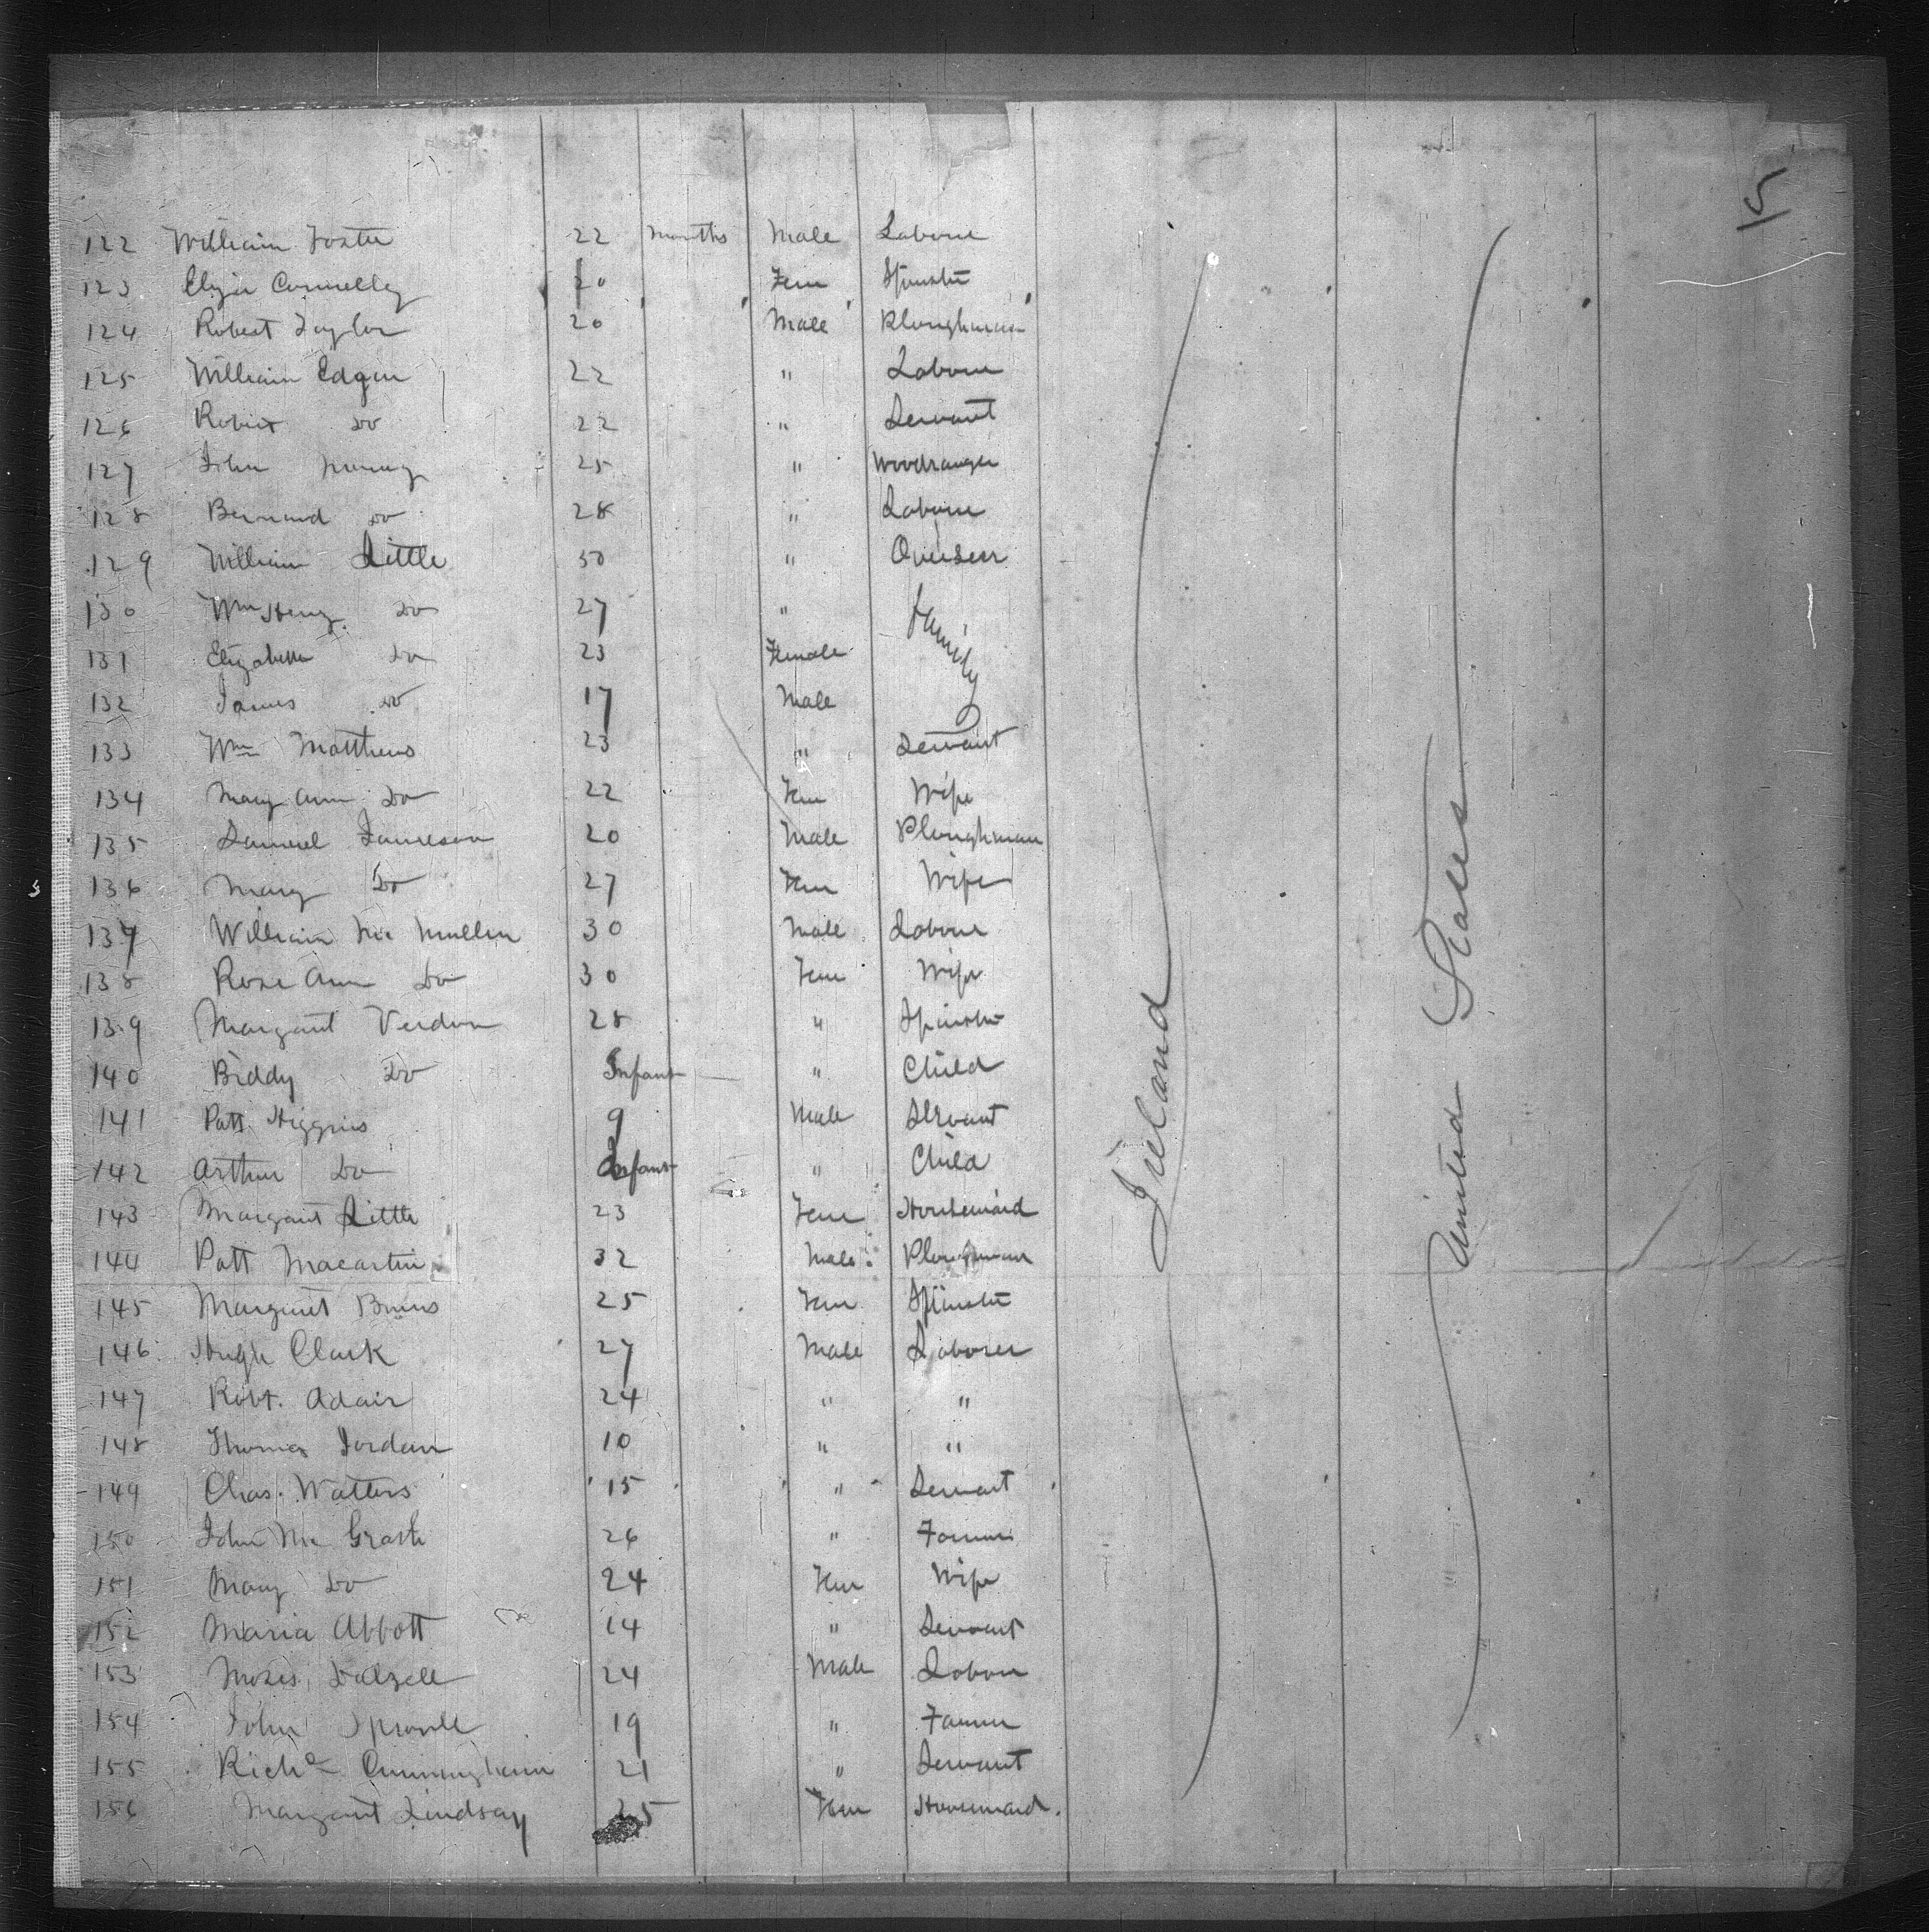 15
122 William Foster 22 months Male Laborer
123 Eliza Connelly 20 Fem Spinster
124 Robert Taylor 20 Male Ploughman
125 William Edgar 22 " Laborer
126 Robert Do 22 " Servant
127 John Murray 25 " Woodranger
128 Bernard Do 28 " Laborer
129 William Little 50 " Overseer
130 Wm Henry Do 27 " Family
131 Elizabeth Do 23 Female
132 James Do 17 Male
133 Wm Matthews 23 " Servant
134 Mary Ann Do 22 Fem Wife
135 Samuel Jameson 20 Male Ploughman
136 Mary Do 27 Fem Wife
137 William Mc Mullen 30 Male Laborer
138 Rose Ann Do 30 Fem Wife
139 Margaret Verdon 28 " Spinster
140 Biddy Do Infant " Child
141 Patt Higgins 9 Male Servant
142 Arthur Do Infant " Child
143 Margaret Little 23 Fem Housemaid
144 Patt Macartin 32 Male Ploughman
145 Margaret Burns 25 Fem Spinster
146 Hugh Clark 27 Male Laborer
147 Robt. Adair 24 " "
148 Thomas Jordan 10 " "
149 Chas. Watters 15 " Servant
150 John Mc Grath 26 " Farmer
151 Mary Do 24 Fem Wife
152 Maria Abbott 14 " Servant
153 Moses Dalzell 24 Male Labour
154 John Sproule 19 " Farmer
155 Richd Cunningham 21 " Servant
156 Margaret Lindsay 25 Fem Housemaid.
Ireland
United States